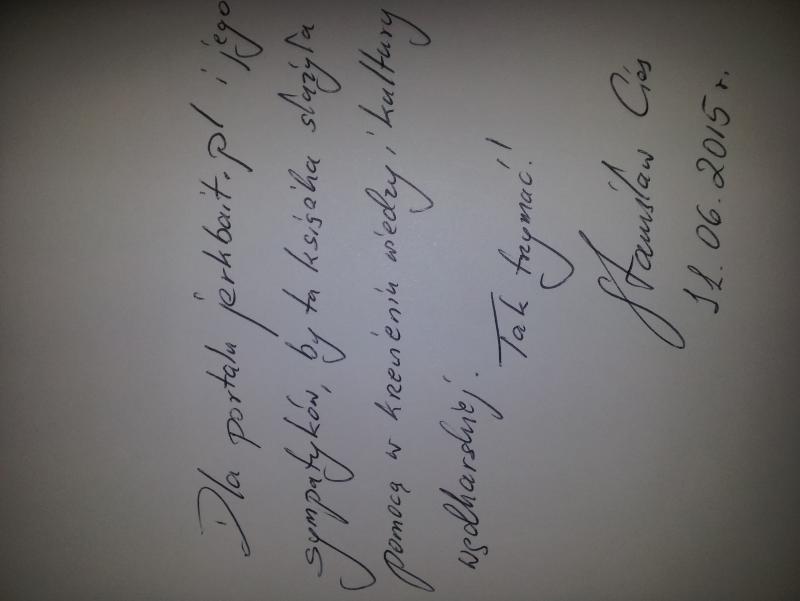 Dla portalu jerkbait.pl i jego
sympatyków, by ta książka służyła
pomocą w krzewieniu wiedzy i kultury
wędkarskiej. Tak trzymać!
Stanisław Cios
11.06.2015 r.